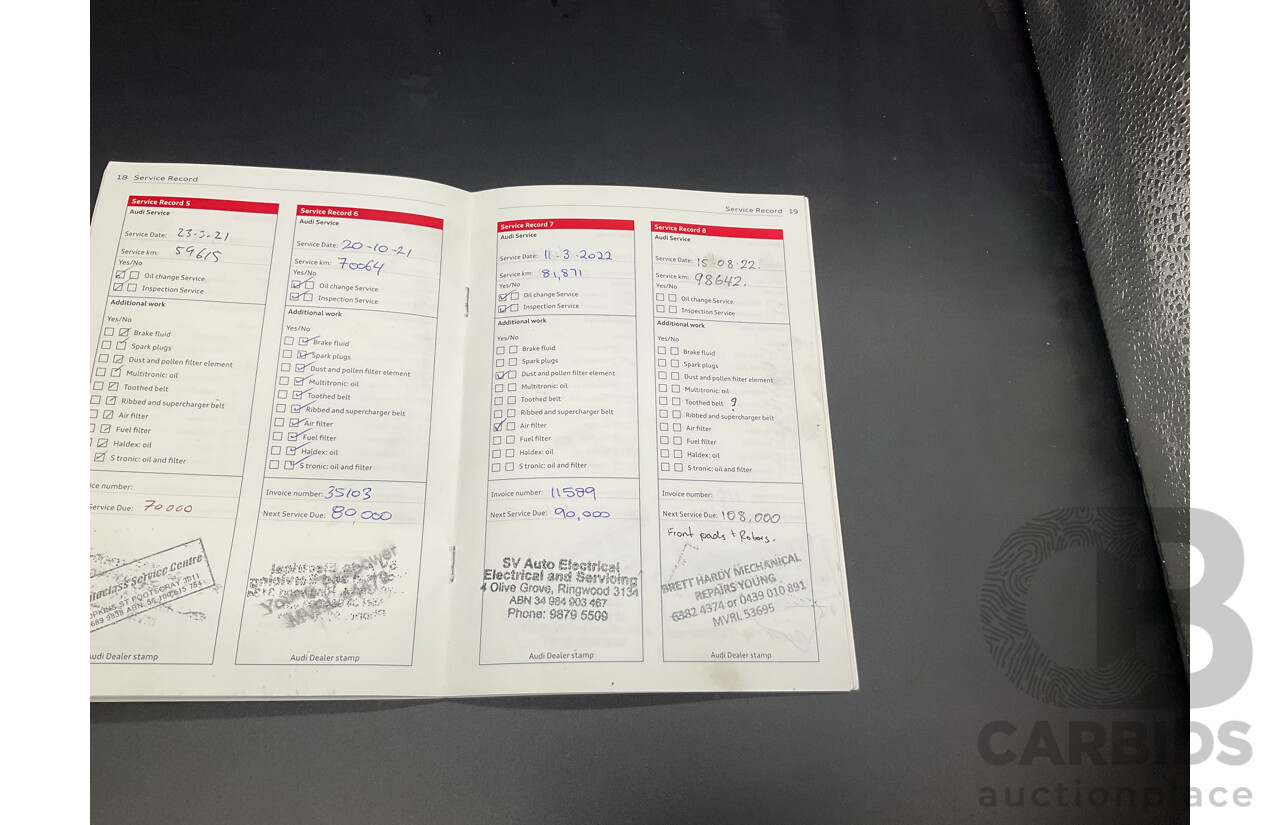 18 Service Record
Service Record 5
Audi Service
Service Date: 23-3-21
Service km: 59615
Yes/No
Oil change Service
Inspection Service
Additional work
Yes/No
Brake fluid
Spark plugs
Dust and pollen filter element
Multitronic: oil
Toothed belt
Ribbed and supercharger belt
Air filter
Fuel filter
Haldex: oil
S tronic: oil and filter
ice number:
Service Due: 70000
Service Centre
Audi Dealer stamp
Service Record 6
Audi Service
Service Date: 20-10-21
Service km: 70064
Yes/No
Oil change Service
Inspection Service
Additional work
Yes/No
Brake fluid
Spark plugs
Dust and pollen filter element
Multitronic: oil
Toothed belt
Ribbed and supercharger belt
Air filter
Fuel filter
Haldex: oil
S tronic: oil and filter
Invoice number: 35103
Next Service Due: 80,000
Audi Dealer stamp
Service Record 19
Service Record 7
Audi Service
Service Date: 11-3-2022
Service km: 81,871
Yes/No
Oil change Service
Inspection Service
Additional work
Yes/No
Brake fluid
Spark plugs
Dust and pollen filter element
Multitronic: oil
Toothed belt
Ribbed and supercharger belt
Air filter
Fuel filter
Haldex: oil
S tronic: oil and filter
Invoice number: 11589
Next Service Due: 90,000
SV Auto Electrical
Electrical and Servicing
4 Olive Grove, Ringwood 3134
ABN 34 984 903 467
Phone: 9879 5509
Audi Dealer stamp
Service Record 8
Audi Service
Service Date: 15.08.22.
Service km: 98642.
Yes/No
Oil change Service
Inspection Service
Additional work
Yes/No
Brake fluid
Spark plugs
Dust and pollen filter element
Multitronic: oil
Toothed belt ?
Ribbed and supercharger belt
Air filter
Fuel filter
Haldex: oil
S tronic: oil and filter
Invoice number:
Next Service Due: 108,000
Front pads + Robors.
BRETT HARDY MECHANICAL
REPAIRS YOUNG
6382 4374 or 0439 010 891
MVRL 53695
Audi Dealer stamp
CB
CARBIDS
auctionplace